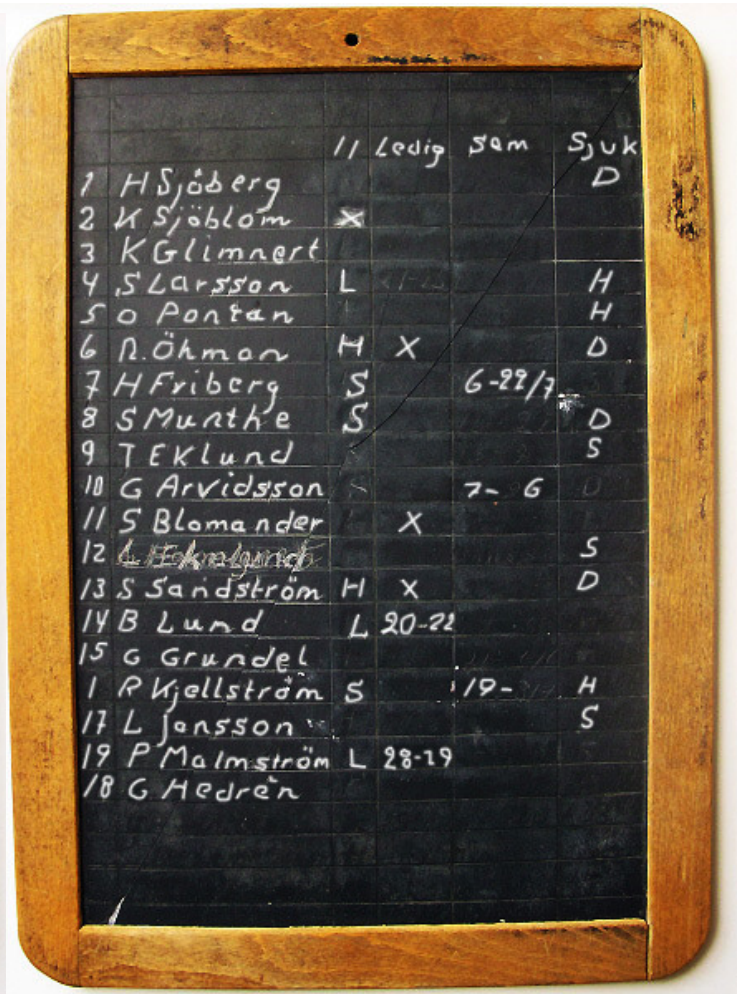 11 Ledig Sem Sjuk
1 H Sjöberg D
2 K Sjöblom X
3 K Glimnert
4 S Larsson L H
5 O Pontan H
6 R. Öhman H X D
7 H Friberg S 6-22/7
8 S Munthe S D
9 T Eklund S
10 G Arvidsson 7- 6
11 S Blomander X
12 S
13 S Sandström H X D
14 B Lund L 20-22
15 G Grundel
1 R Kjellström S 19- H
17 L Jansson S
19 P Malmström L 28-29
18 G Hedrén